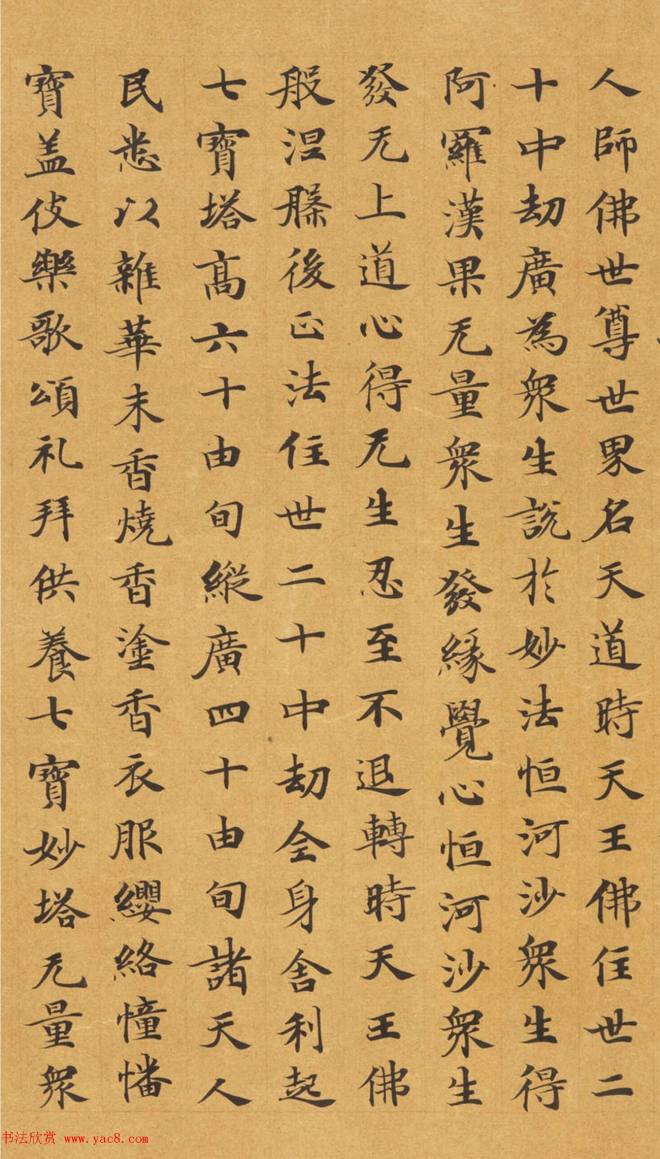 人師佛世尊世界名天道時天王佛住世二
十中劫廣為衆生說於妙法恒河沙衆生得
阿羅漢果无量衆生發緣覺心恒河沙衆生
發无上道心得无生忍至不退轉時天王佛
般涅槃後正法住世二十中劫全身舍利起
七寶塔高六十由旬縱廣四十由旬諸天人
民悉以雜華末香燒香塗香衣服纓絡幢幡
寶盖伎樂歌頌礼拜供養七寶妙塔无量衆
书法欣赏 www.yac8.com